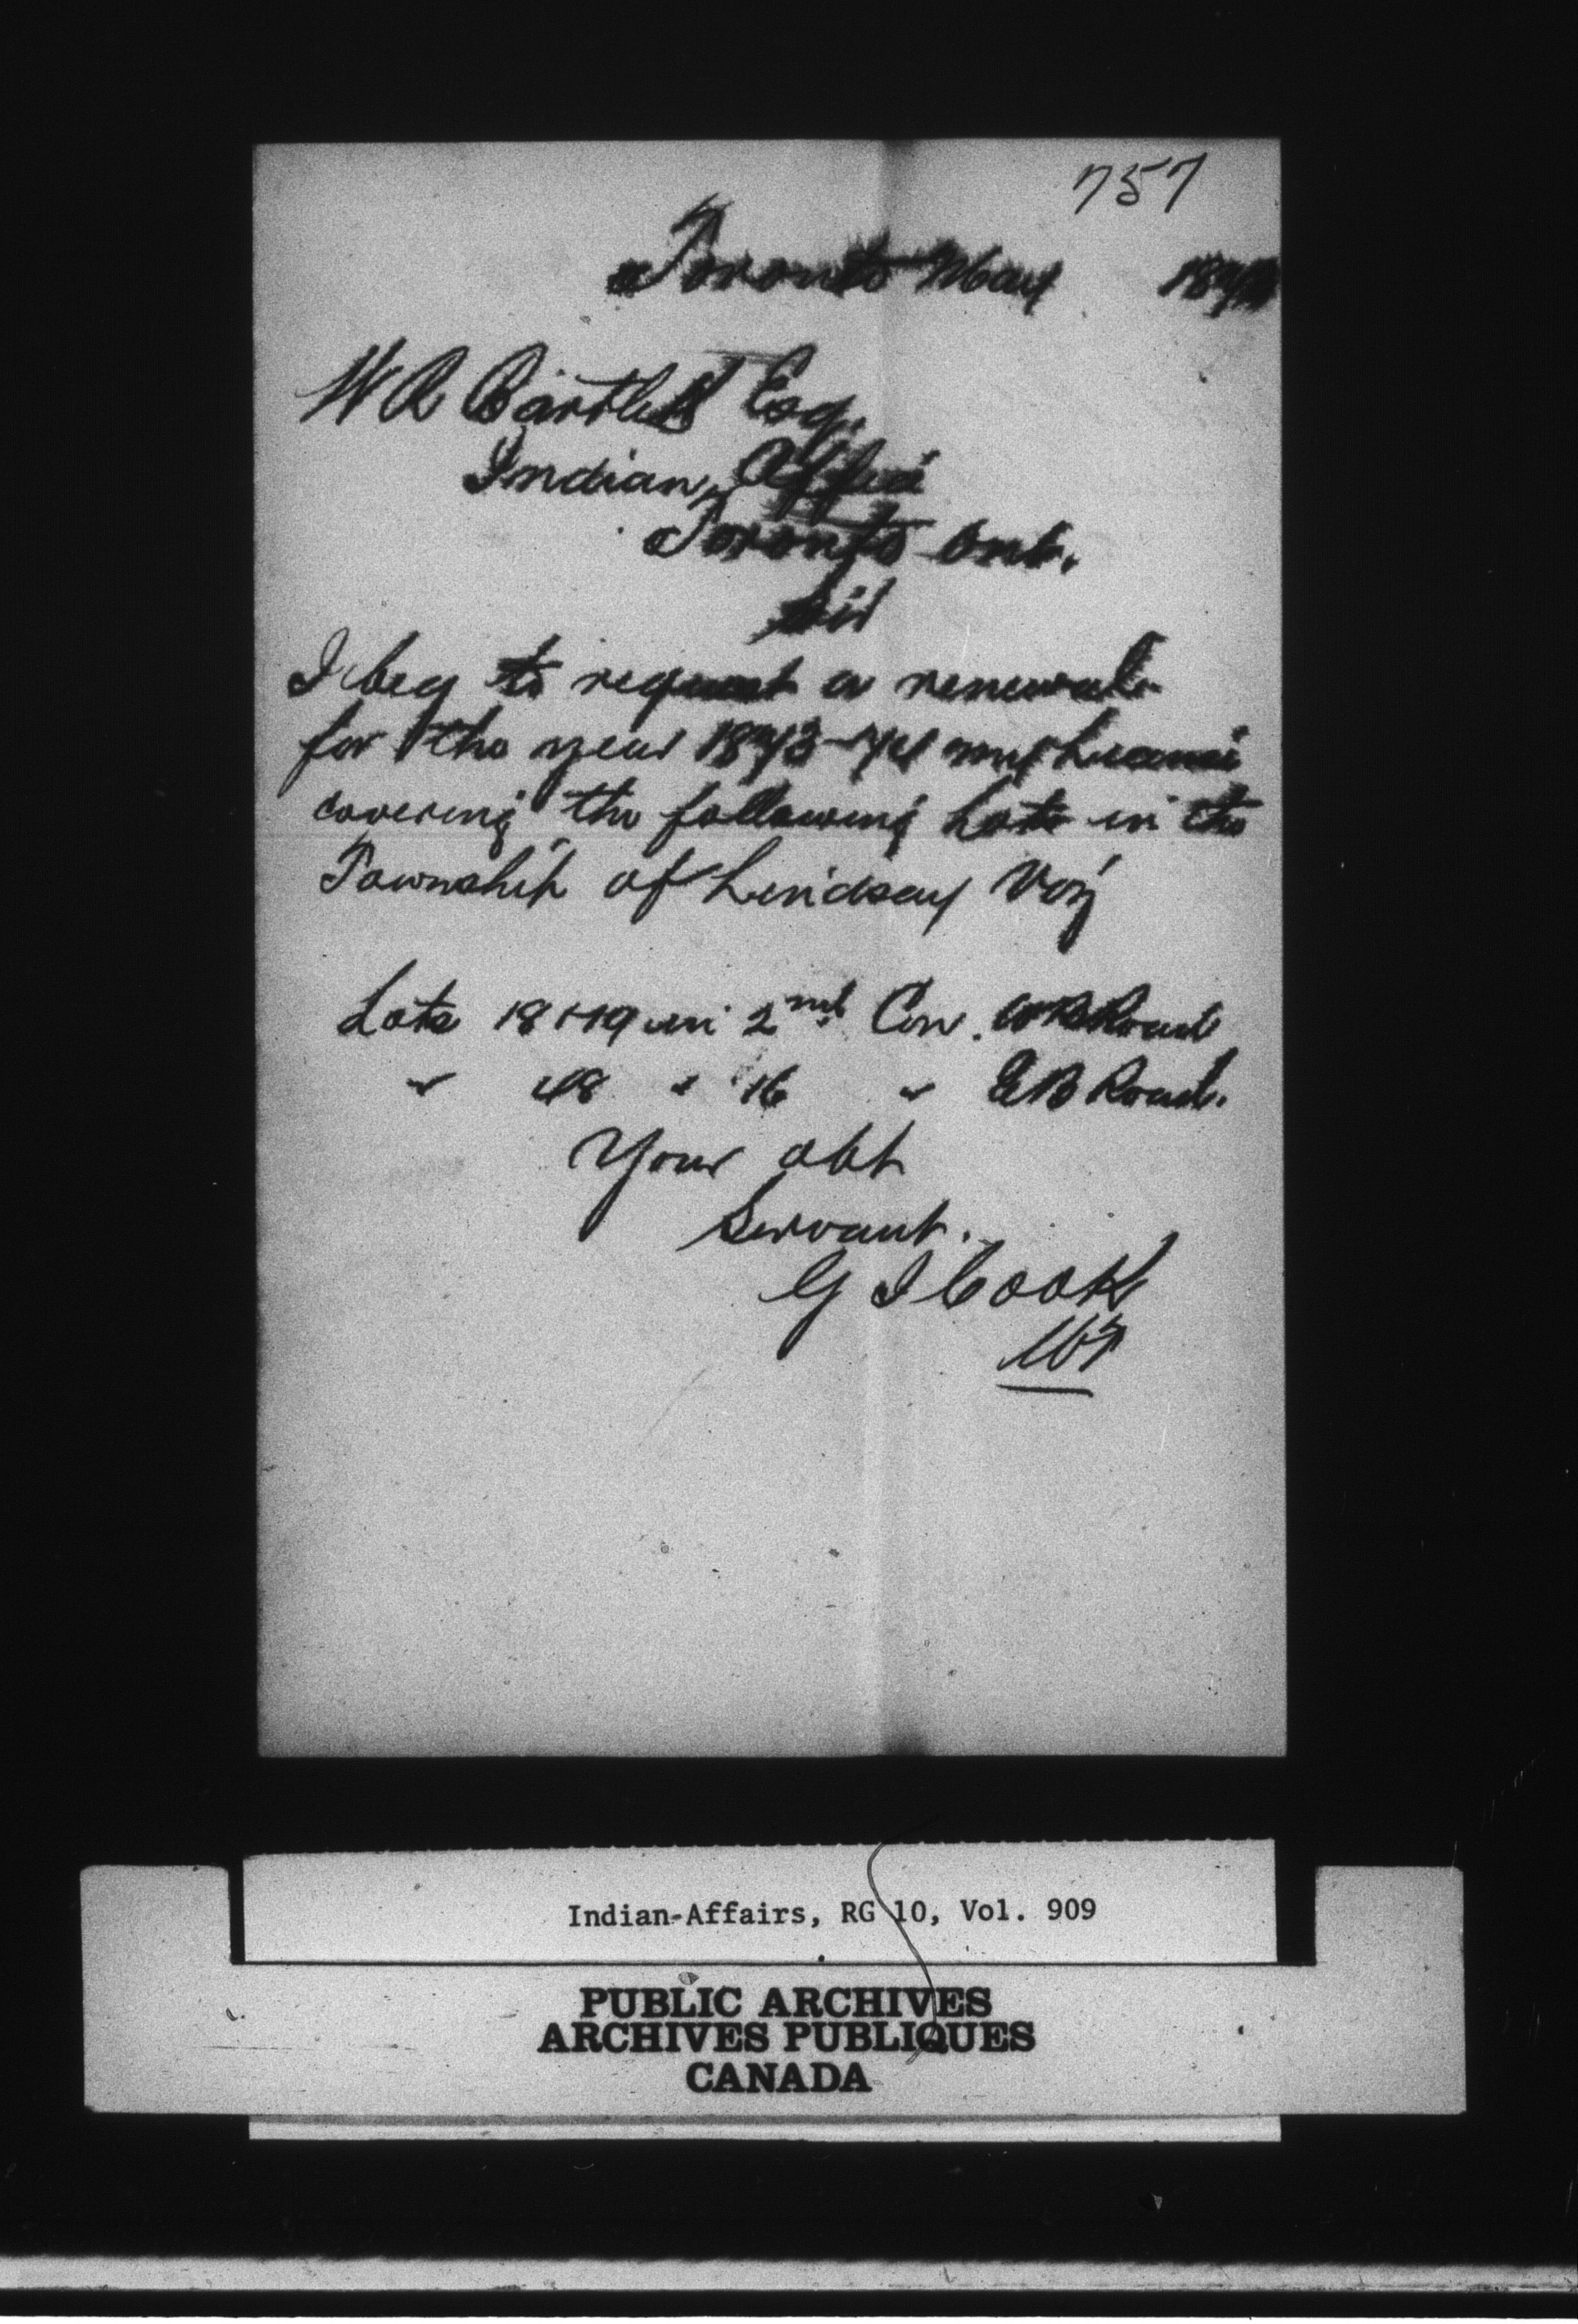 757
Toronto May 187
W R Bartlett Esq.
Indian Office
Toronto Ont.
Sir
I beg to request a renewal
for the year 1873-74 my License
covering the following Lots in the
Township of Lindsay Viz
Lots 18 + 19 in 2nd Con. W B Road
" 48 " 16 " E B Road.
Your obt
Servant.
G I Cook
Indian-Affairs, RG 10, Vol. 909
PUBLIC ARCHIVES
ARCHIVES PUBLIQUES
CANADA